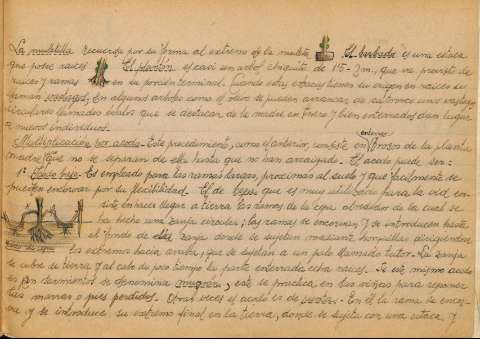 La muletilla recuerda por su forma al extremo de la muleta. El barbado es una estaca
que posee raices. El plantón es casi un arbol chiquito de 1'5-2 m, que va provisto de
raices y ramas en su porción terminal. Cuando estas estacas tienen su origen en raices se
llaman En algunos arboles como el olivo se pueden arrancar de su tronco unos
circulares llamados ovulos que se destacan de la madre en trozos y bien enterrados dan lugar
a nuevos individuos.
Multiplicación por acodo.- Este procedimiento, como el anterior, consiste en enterrar trozos de la planta
madre que no se separan de ella hasta que no han arraigado. El acodo puede ser:
1º Es empleado para las ramas largas, proximas al suelo y que facilmente se
pueden encorvar por su flexibilidad. El de que es muy utilizado para la vid, con-
siste en hacer llegar a tierra las ramas de la cepa alrededor de la cual se
ha hecho una zanja circular; las ramas se encorvan y se introducen hasta
el fondo de esta zanja donde se sujetan mediante horquillas dirigiendose
los extremos hacia arriba, que se sujetan a un palo llamado tutor. La zanja
se cubre de tierra y al cabo de poco tiempo la parte enterrada echa raices. Si este mismo acodo
es con sarmientos se denomina mugrón, este se practica en las viñas para reponer
las marras o pies perdidos. Otras veces el acodo es de En él la rama se encor-
va y se introduce su extremo final en la tierra, donde se sujeta con una estaca y